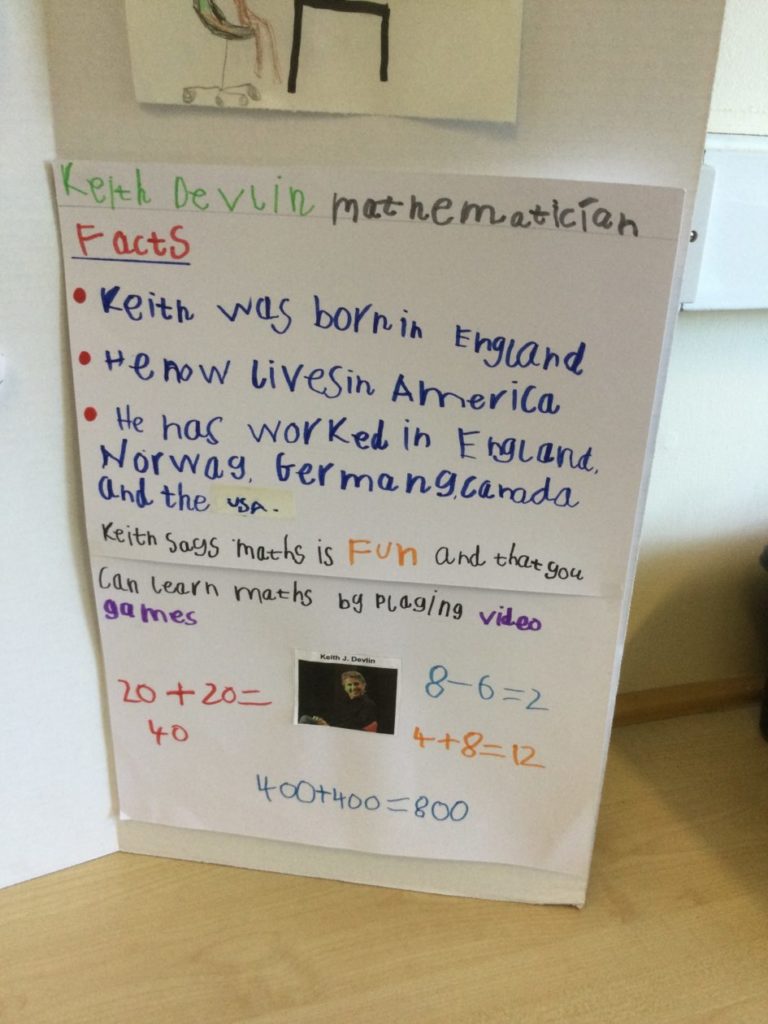 Keith Devlin mathematician
Facts
• Keith was born in England
• He now lives in America
• He has worked in England,
Norway, Germany, Canada
and the USA.
Keith says maths is FUN and that you
can learn maths by playing video
games
Keith J. Devlin
20+20=
40
8-6=2
4+8=12
400+400=800